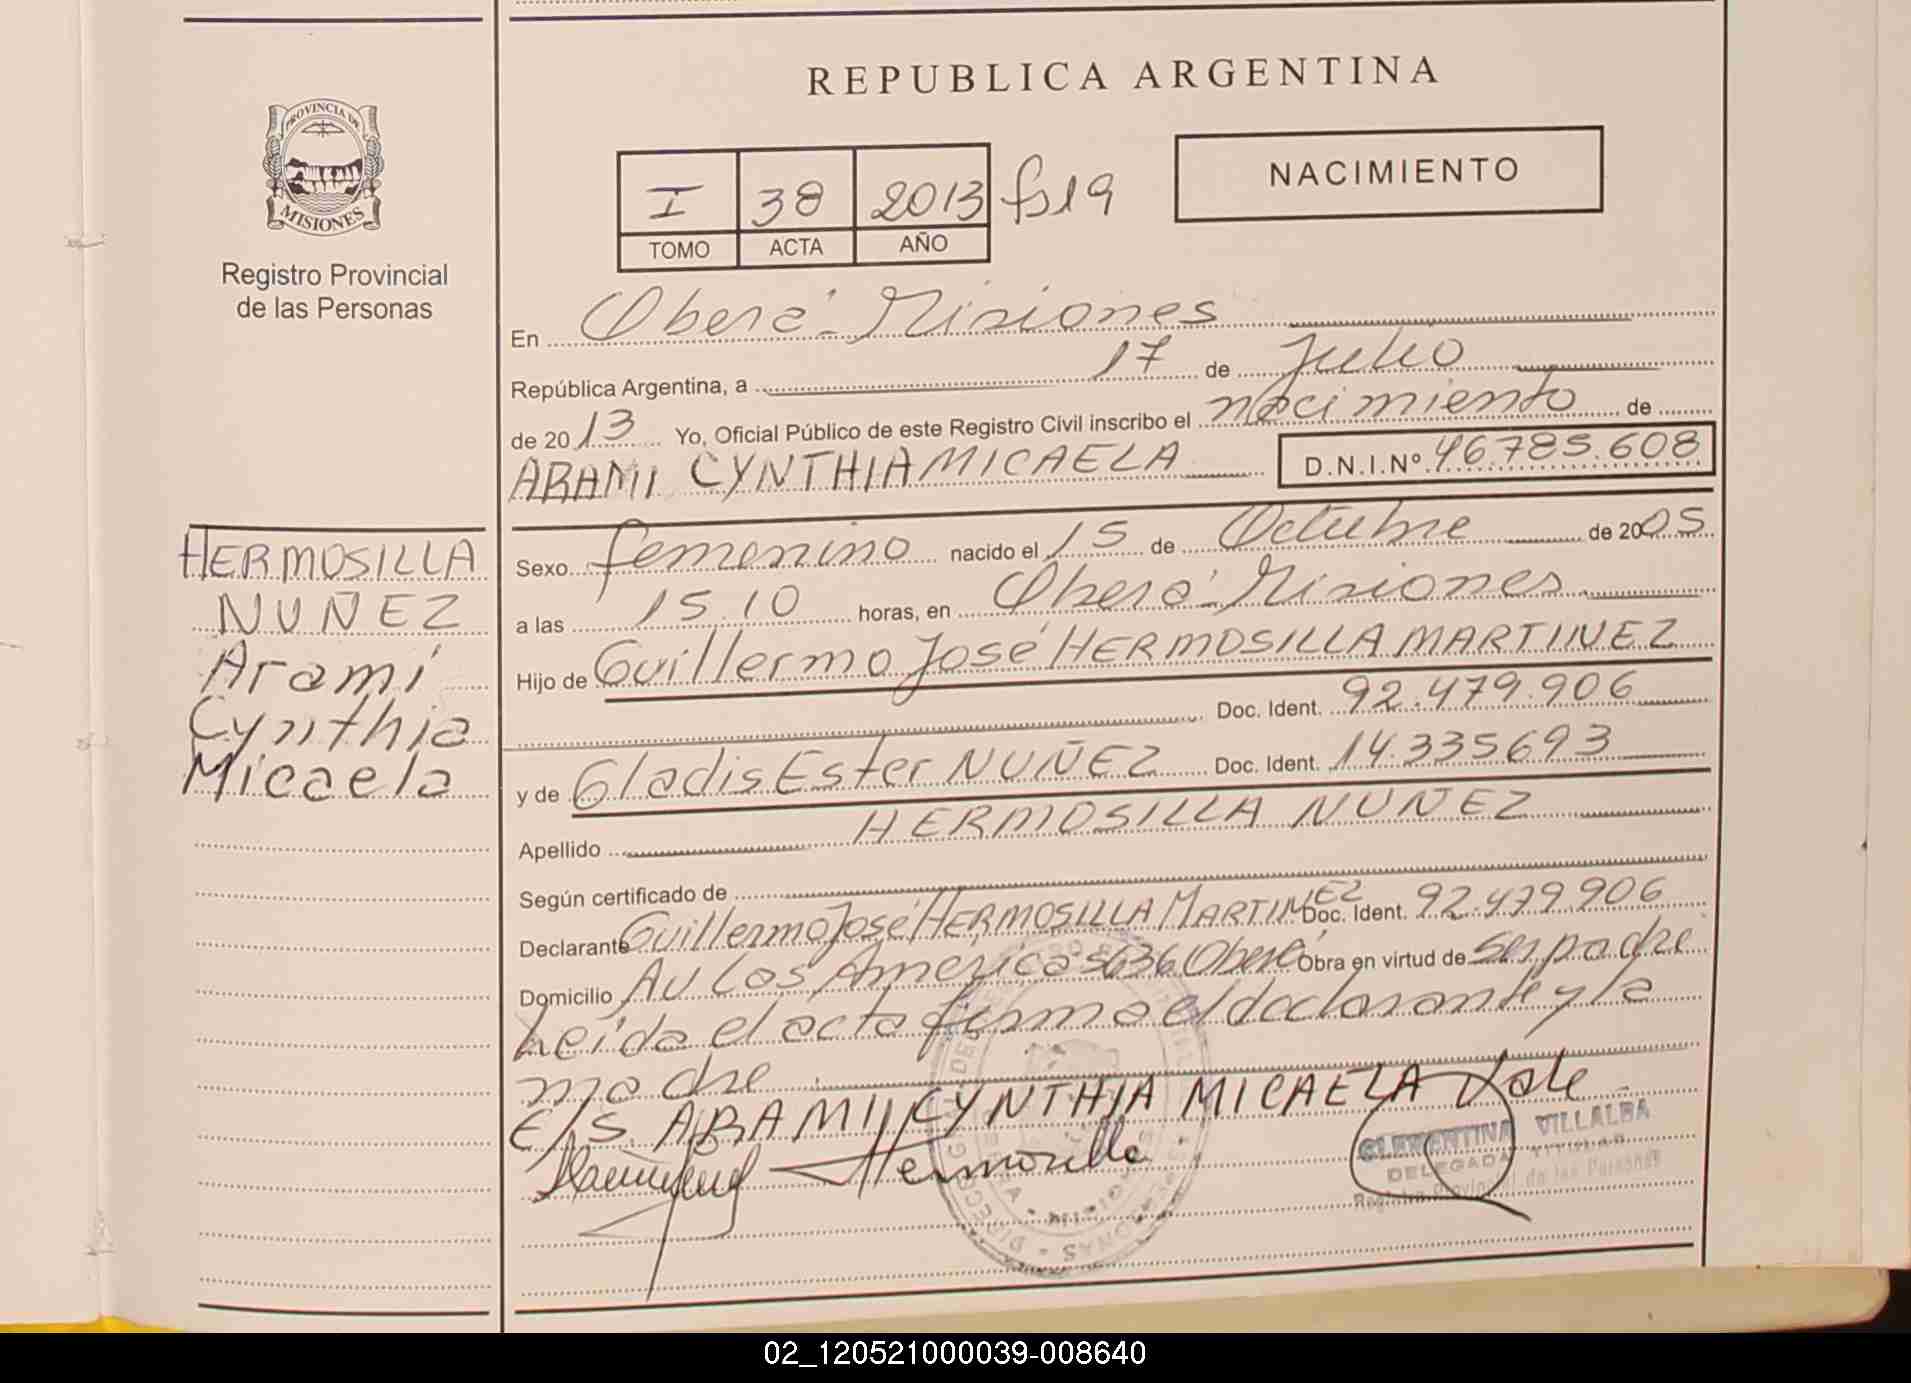 REPUBLICA ARGENTINA
PROVINCIA DE
MISIONES
Registro Provincial
de las Personas
I 38 2013 fs19
TOMO ACTA AÑO
NACIMIENTO
En Oberá - Misiones
República Argentina, a 17 de Julio
de 2013 Yo, Oficial Público de este Registro Civil inscribo el nacimiento de
ARAMI CYNTHIA MICAELA D.N.I.Nº 46.785.608
HERMOSILLA
NUÑEZ
Aramí
Cynthia
Micaela
Sexo femenino nacido el 15 de Octubre de 2005
a las 15.10 horas, en Oberá - Misiones
Hijo de Guillermo José HERMOSILLA MARTINEZ
Doc. Ident. 92.479.906
y de Gladis Ester NUÑEZ Doc. Ident. 14.335693
Apellido HERMOSILLA NUÑEZ
Según certificado de
Declarante Guillermo José HERMOSILLA MARTINEZ Doc. Ident. 92.479.906
Domicilio Av Las Americas 636 Oberá Obra en virtud de ser padre
Leída el acta firma el declarante y la
madre
E/S. ARAMI CYNTHIA MICAELA Vale
Hermosilla
CLEMENTINA VILLALBA
DELEGADA TITULAR
Registro Provincial de las Personas
02_120521000039-008640